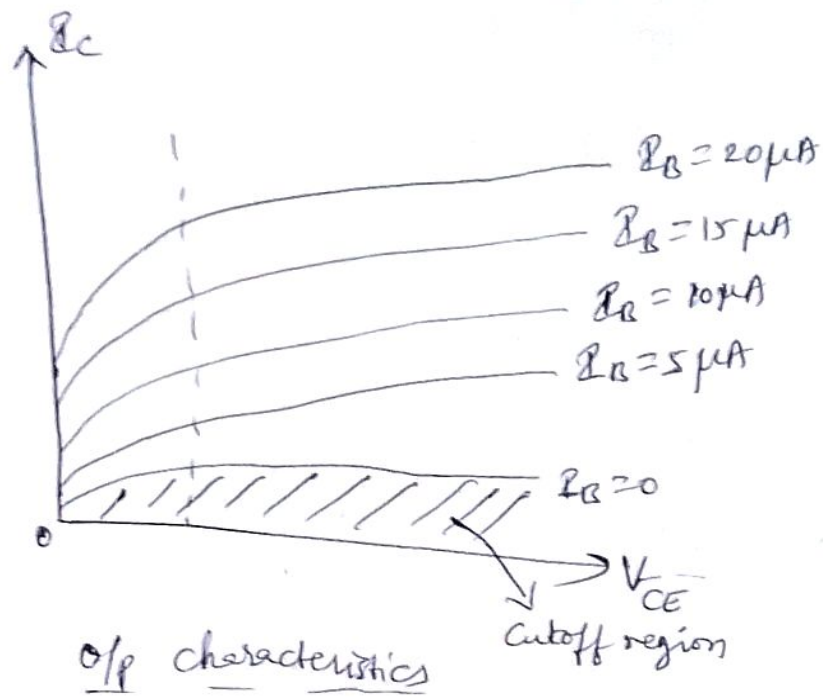 I_C
I_B = 20μA
I_B = 15μA
I_B = 10μA
I_B = 5μA
I_B = 0
0
V_CE
Cutoff region
O/p characteristics